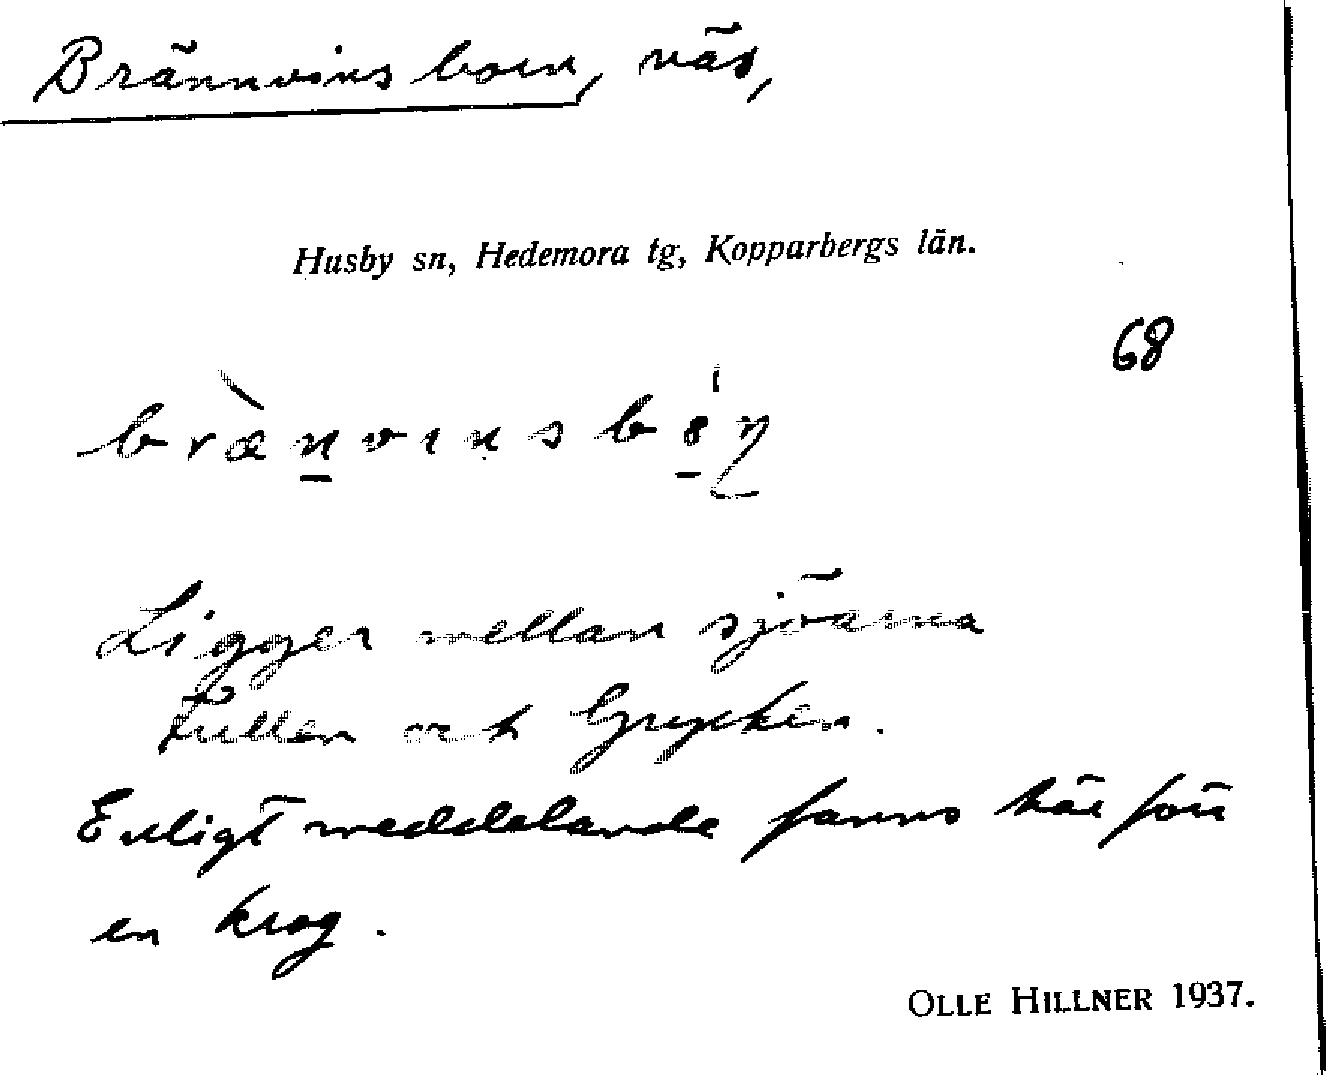 Brännvinsborn, näs,
Husby sn, Hedemora tg, Kopparbergs län.
68
Ligger mellan sjöarna
Fullen och Grycken.
Enligt meddelande fanns här förr
en krog.
OLLE HILLNER 1937.